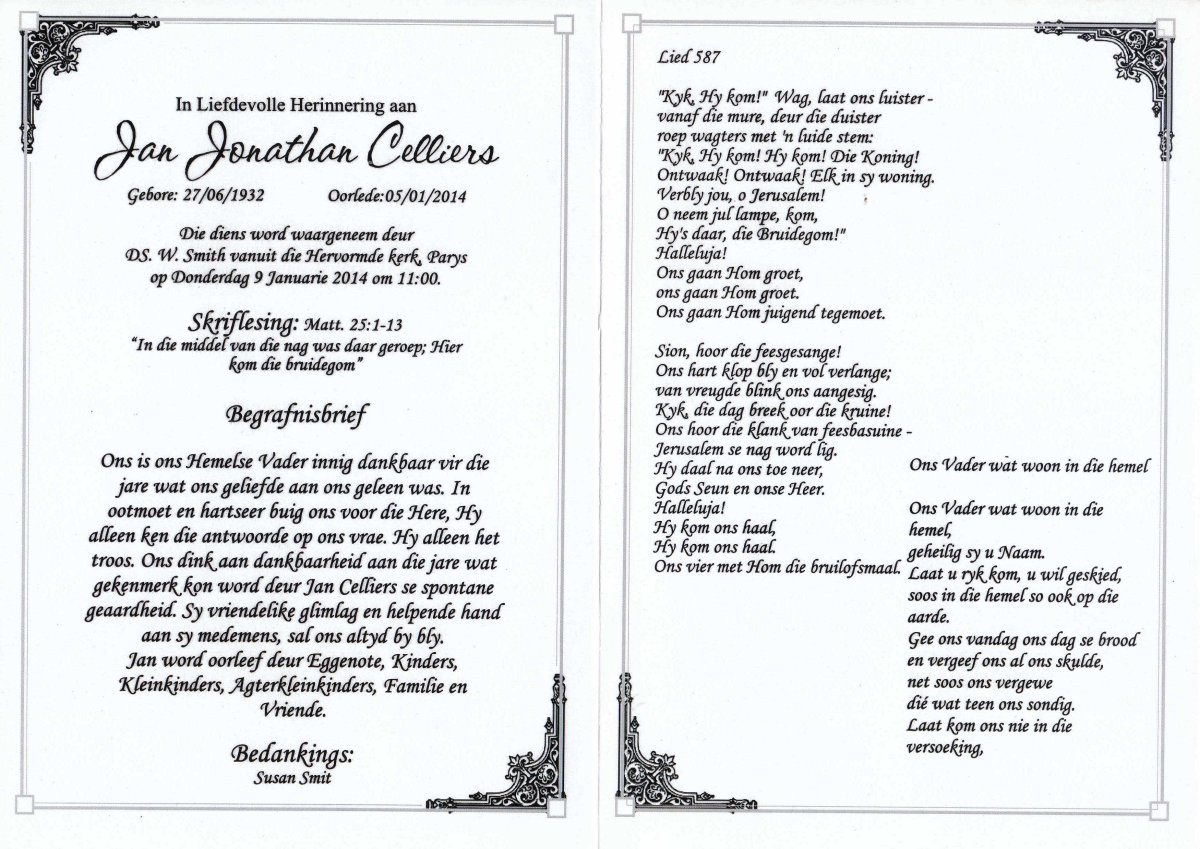 In Liefdevolle Herinnering aan
Jan Jonathan Celliers
Gebore: 27/06/1932 Oorlede:05/01/2014
Die diens word waargeneem deur
DS. W. Smith vanuit die Hervormde kerk, Parys
op Donderdag 9 Januarie 2014 om 11:00.
Skriflesing: Matt. 25:1-13
“In die middel van die nag was daar geroep; Hier
kom die bruidegom”
Begrafnisbrief
Ons is ons Hemelse Vader innig dankbaar vir die
jare wat ons geliefde aan ons geleen was. In
ootmoet en hartseer buig ons voor die Here, Hy
alleen ken die antwoorde op ons vrae. Hy alleen het
troos. Ons dink aan dankbaarheid aan die jare wat
gekenmerk kon word deur Jan Celliers se spontane
geaardheid. Sy vriendelike glimlag en helpende hand
aan sy medemens, sal ons altyd by bly.
Jan word oorleef deur Eggenote, Kinders,
Kleinkinders, Agterkleinkinders, Familie en
Vriende.
Bedankings:
Susan Smit
Lied 587
"Kyk, Hy kom!" Wag, laat ons luister -
vanaf die mure, deur die duister
roep wagters met 'n luide stem:
"Kyk, Hy kom! Hy kom! Die Koning!
Ontwaak! Ontwaak! Elk in sy woning.
Verbly jou, o Jerusalem!
O neem jul lampe, kom,
Hy's daar, die Bruidegom!"
Halleluja!
Ons gaan Hom groet,
ons gaan Hom groet.
Ons gaan Hom juigend tegemoet.
Sion, hoor die feesgesange!
Ons hart klop bly en vol verlange;
van vreugde blink ons aangesig.
Kyk, die dag breek oor die kruine!
Ons hoor die klank van feesbasuine -
Jerusalem se nag word lig.
Hy daal na ons toe neer,
Gods Seun en onse Heer.
Halleluja!
Hy kom ons haal,
Hy kom ons haal.
Ons vier met Hom die bruilofsmaal.
Ons Vader wat woon in die hemel
Ons Vader wat woon in die
hemel,
geheilig sy u Naam.
Laat u ryk kom, u wil geskied,
soos in die hemel so ook op die
aarde.
Gee ons vandag ons dag se brood
en vergeef ons al ons skulde,
net soos ons vergewe
dié wat teen ons sondig.
Laat kom ons nie in die
versoeking,